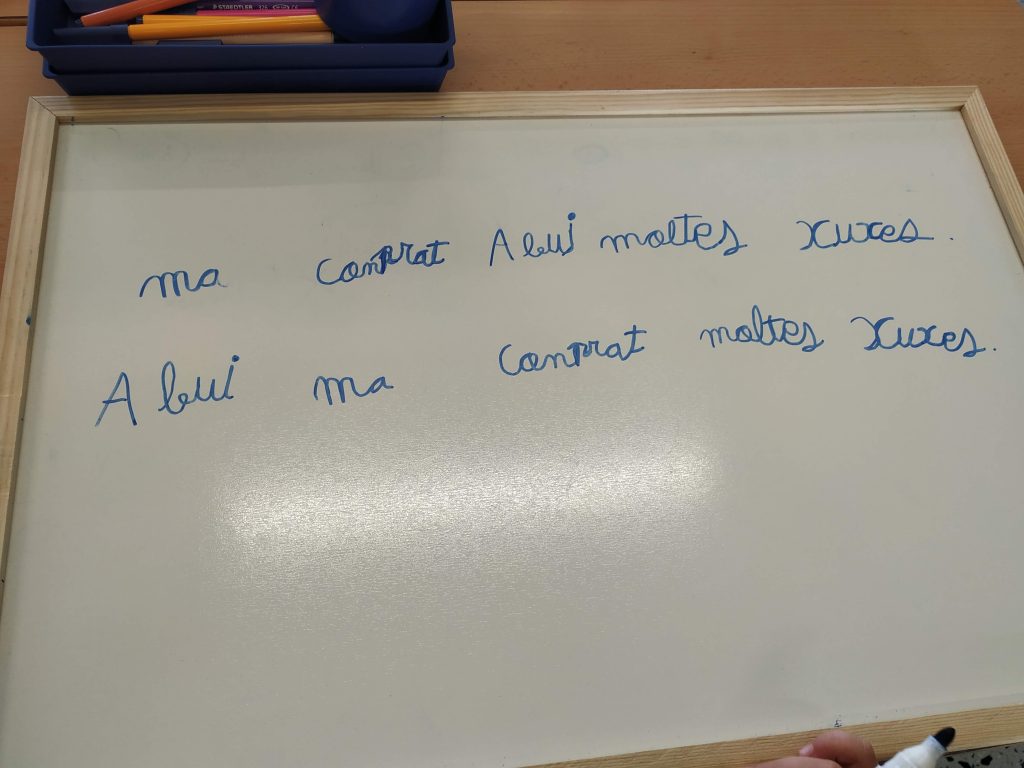 STAEDTLER 326
ma conprat Abui moltes xuxes.
Abui ma conprat moltes xuxes.